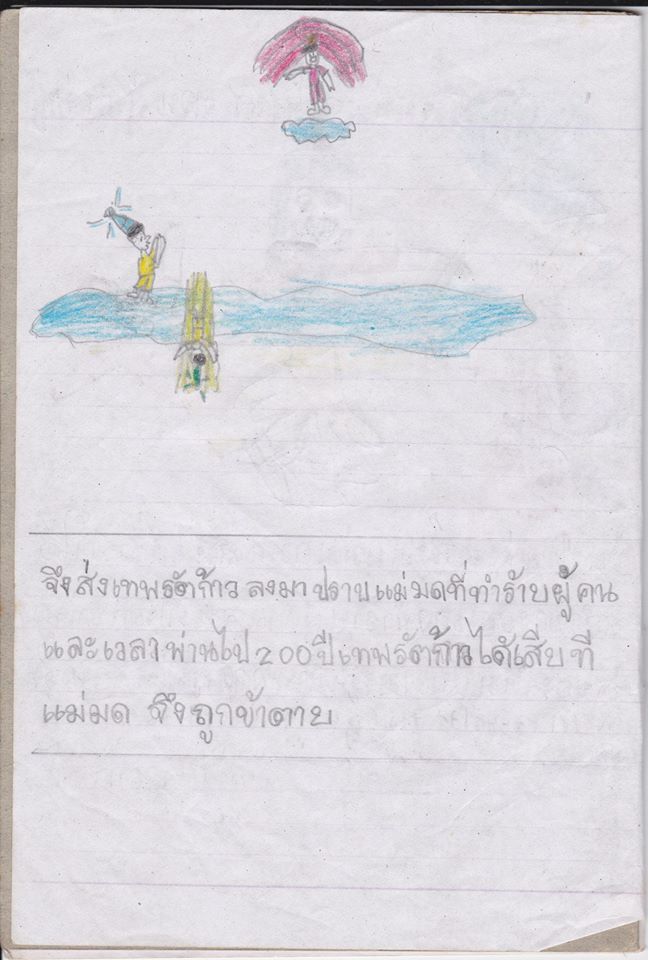 จึงส่งเทพรัตก้าว ลงมาปราบแม่มดที่ทำร้ายผู้คน
และเวลาผ่านไป 200 ปีเทพรัตก้าวได้เสียที
แม่มด จึงถูกข้าตาย